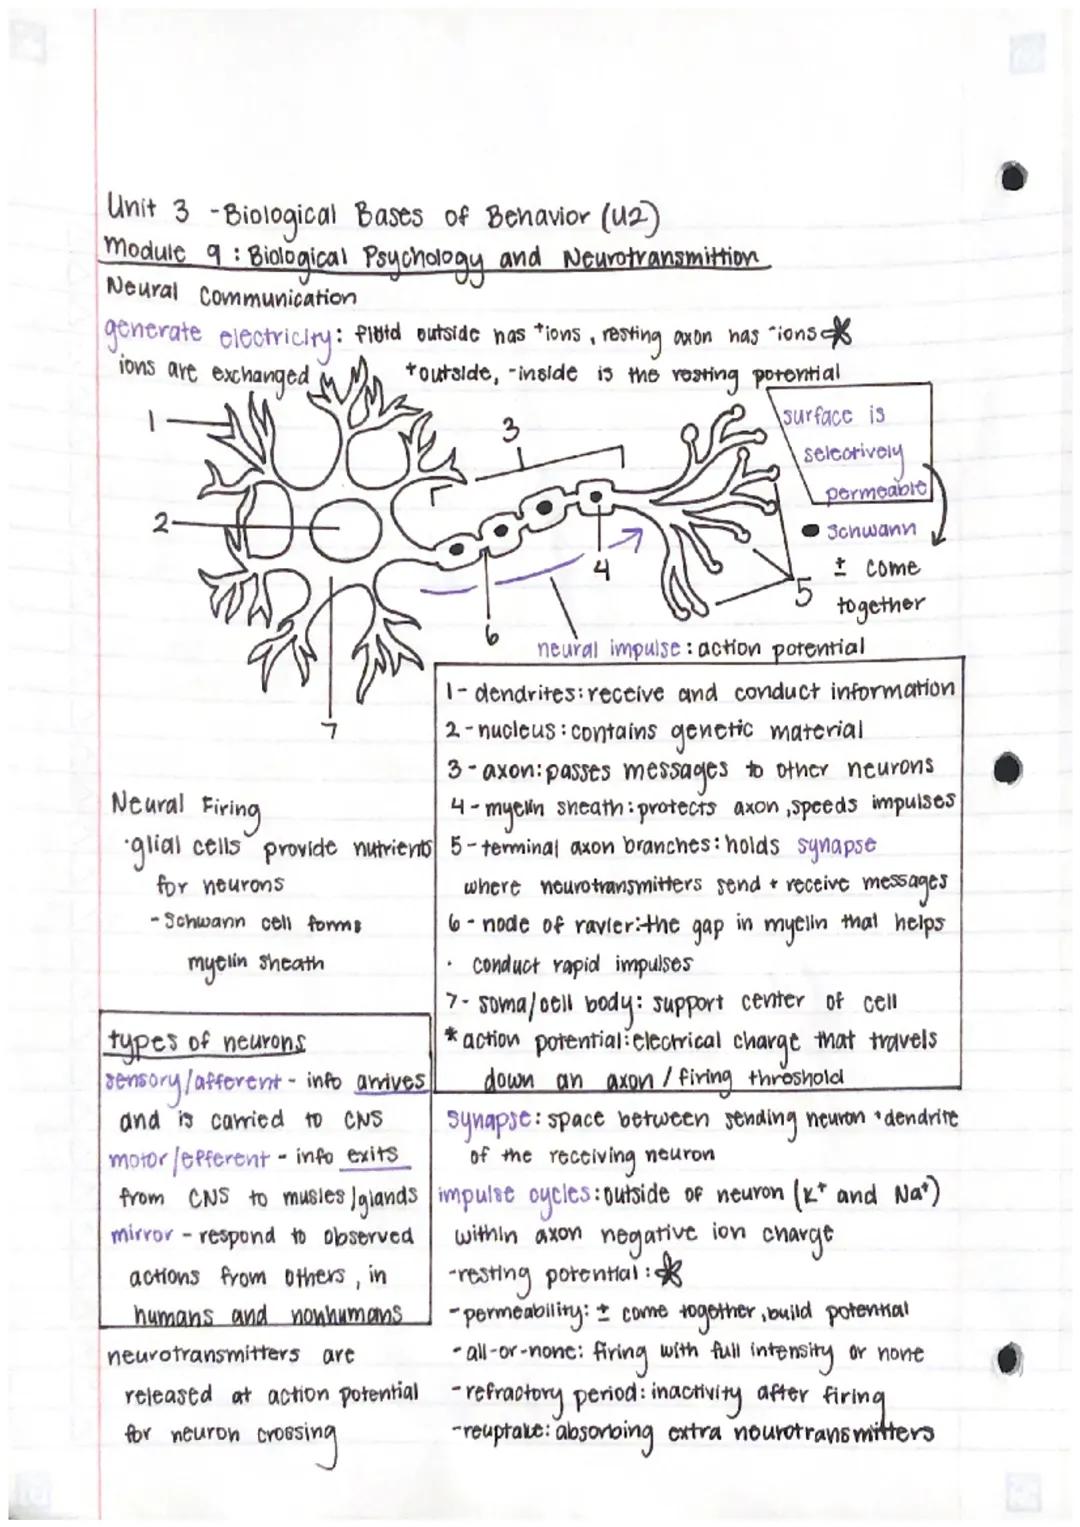 Unit 3 - Biological Bases of Behavior (U2)
Module 9 : Biological Psychology and Neurotransmittion
Neural Communication
generate electricity: fluid outside has +ions, resting axon has -ions *
ions are exchanged
+outside, -inside is the resting potential
surface is
selectively
permeable
Schwann
± come
together
1
2
3
4
5
6
7
neural impulse : action potential
1 - dendrites: receive and conduct information
2 - nucleus : contains genetic material
3 - axon: passes messages to other neurons
4 - myelin sheath : protects axon, speeds impulses
5 - terminal axon branches: holds synapse
where neurotransmitters send + receive messages
6 - node of ravier: the gap in myelin that helps
conduct rapid impulses
7 - soma/cell body: support center of cell
* action potential: electrical charge that travels
down an axon / firing threshold
Neural Firing
·glial cells provide nutrients
for neurons
- Schwann cell forms
myelin sheath
types of neurons
sensory/afferent - info arrives
and is carried to CNS
motor/efferent - info exits
from CNS to musles/glands
mirror - respond to observed
actions from others, in
humans and nonhumans
neurotransmitters are
released at action potential
for neuron crossing
synapse: space between sending neuron + dendrite
of the receiving neuron
impulse cycles: outside of neuron (K+ and Na+)
within axon negative ion charge
-resting potential : *
-permeability: ± come together, build potential
-all-or-none: firing with full intensity or none
-refractory period: inactivity after firing
-reuptake: absorbing extra neurotransmitters